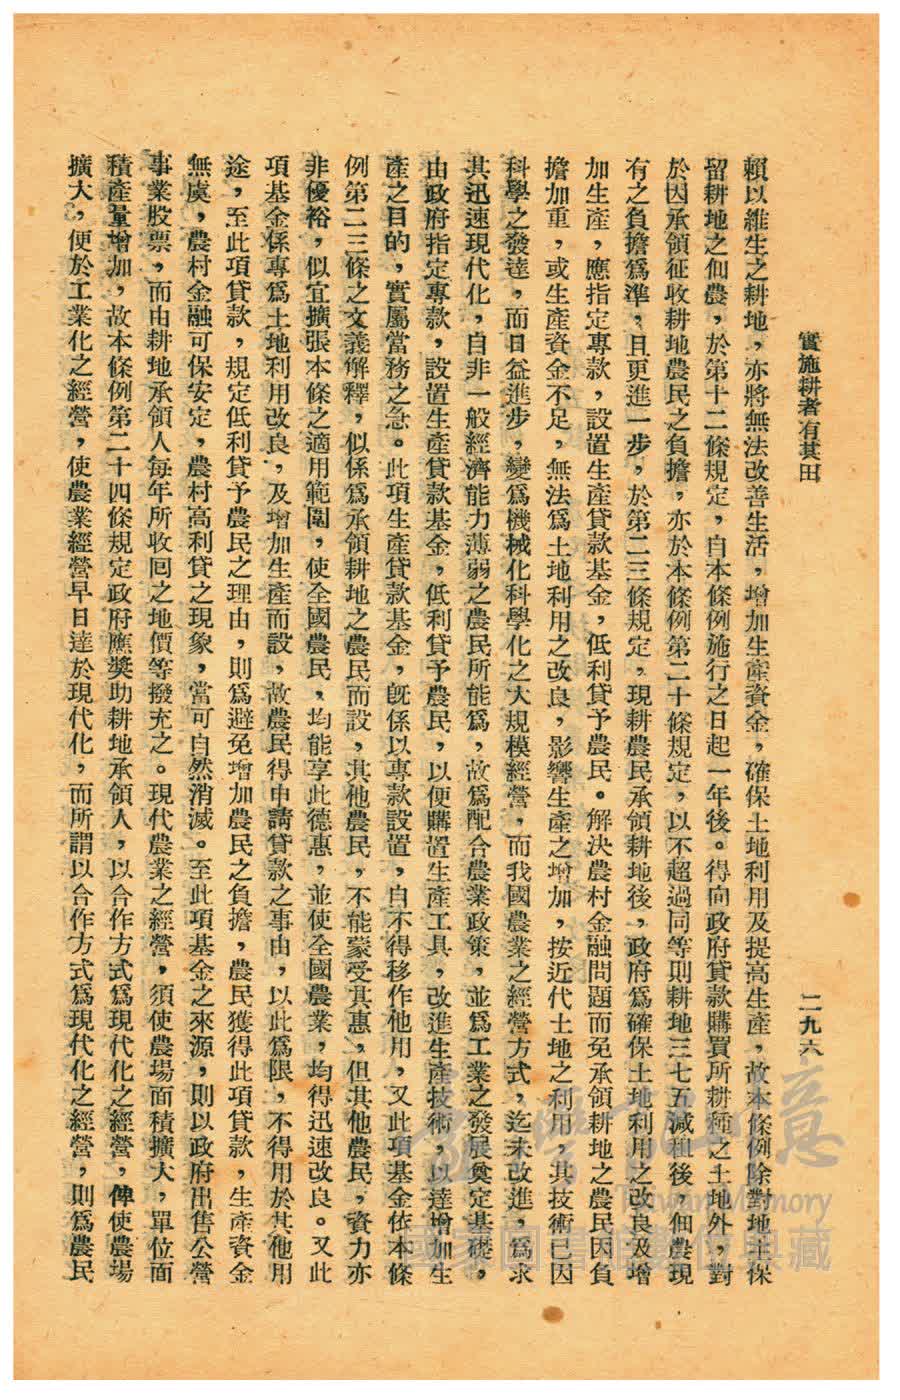 實施耕者有其田
二九六
賴以維生之耕地，亦將無法改善生活，增加生產資金，確保土地利用及提高生產，故本條例除對地主保
留耕地之佃農，於第十二條規定，自本條例施行之日起一年後。得向政府貸款購買所耕種之土地外，對
於因承領征收耕地農民之負擔，亦於本條例第二十條規定，以不超過同等則耕地三七五減租後，佃農現
有之負擔爲準，且更進一步，於第二三條規定，現耕農民承領耕地後，政府爲確保土地利用之改良及增
加生產，應指定專款，設置生產貸款基金，低利貸予農民。解決農村金融問題而免承領耕地之農民因負
擔加重，或生產資金不足，無法爲土地利用之改良，影響生產之增加，按近代土地之利用，其技術已因
科學之發達，而日益進步，變爲機械化科學化之大規模經營，而我國農業之經營方式，迄未改進，爲求
其迅速現代化，自非一般經濟能力薄弱之農民所能爲，故爲配合農業政策，並爲工業之發展奠定基礎，
由政府指定專款，設置生產貸款基金，低利貸予農民，以便購置生產工具，改進生產技術，以達增加生
產之目的，實屬當務之急。此項生產貸款基金，既係以專款設置，自不得移作他用，又此項基金依本條
例第二三條之文義解釋，似係爲承領耕地之農民而設，其他農民，不能蒙受其惠，但其他農民，資力亦
非優裕，似宜擴張本條之適用範圍，使全國農民，均能享此德惠，並使全國農業，均得迅速改良。又此
項基金係專爲土地利用改良，及增加生產而設，故農民得申請貸款之事由，以此爲限，不得用於其他用
途，至此項貸款，規定低利貸予農民之理由，則爲避免增加農民之負擔，農民獲得此項貸款，生產資金
無虞，農村金融可保安定，農村高利貸之現象，當可自然消滅。至此項基金之來源，則以政府出售公營
事業股票，而由耕地承領人每年所收回之地價等撥充之。現代農業之經營，須使農場面積擴大，單位面
積產量增加，故本條例第二十四條規定政府應獎助耕地承領人，以合作方式爲現代化之經營，俾使農場
擴大，便於工業化之經營，使農業經營早日達於現代化，而所謂以合作方式爲現代化之經營，則爲農民
臺灣記憶
Taiwan Memory
國家圖書館數位典藏